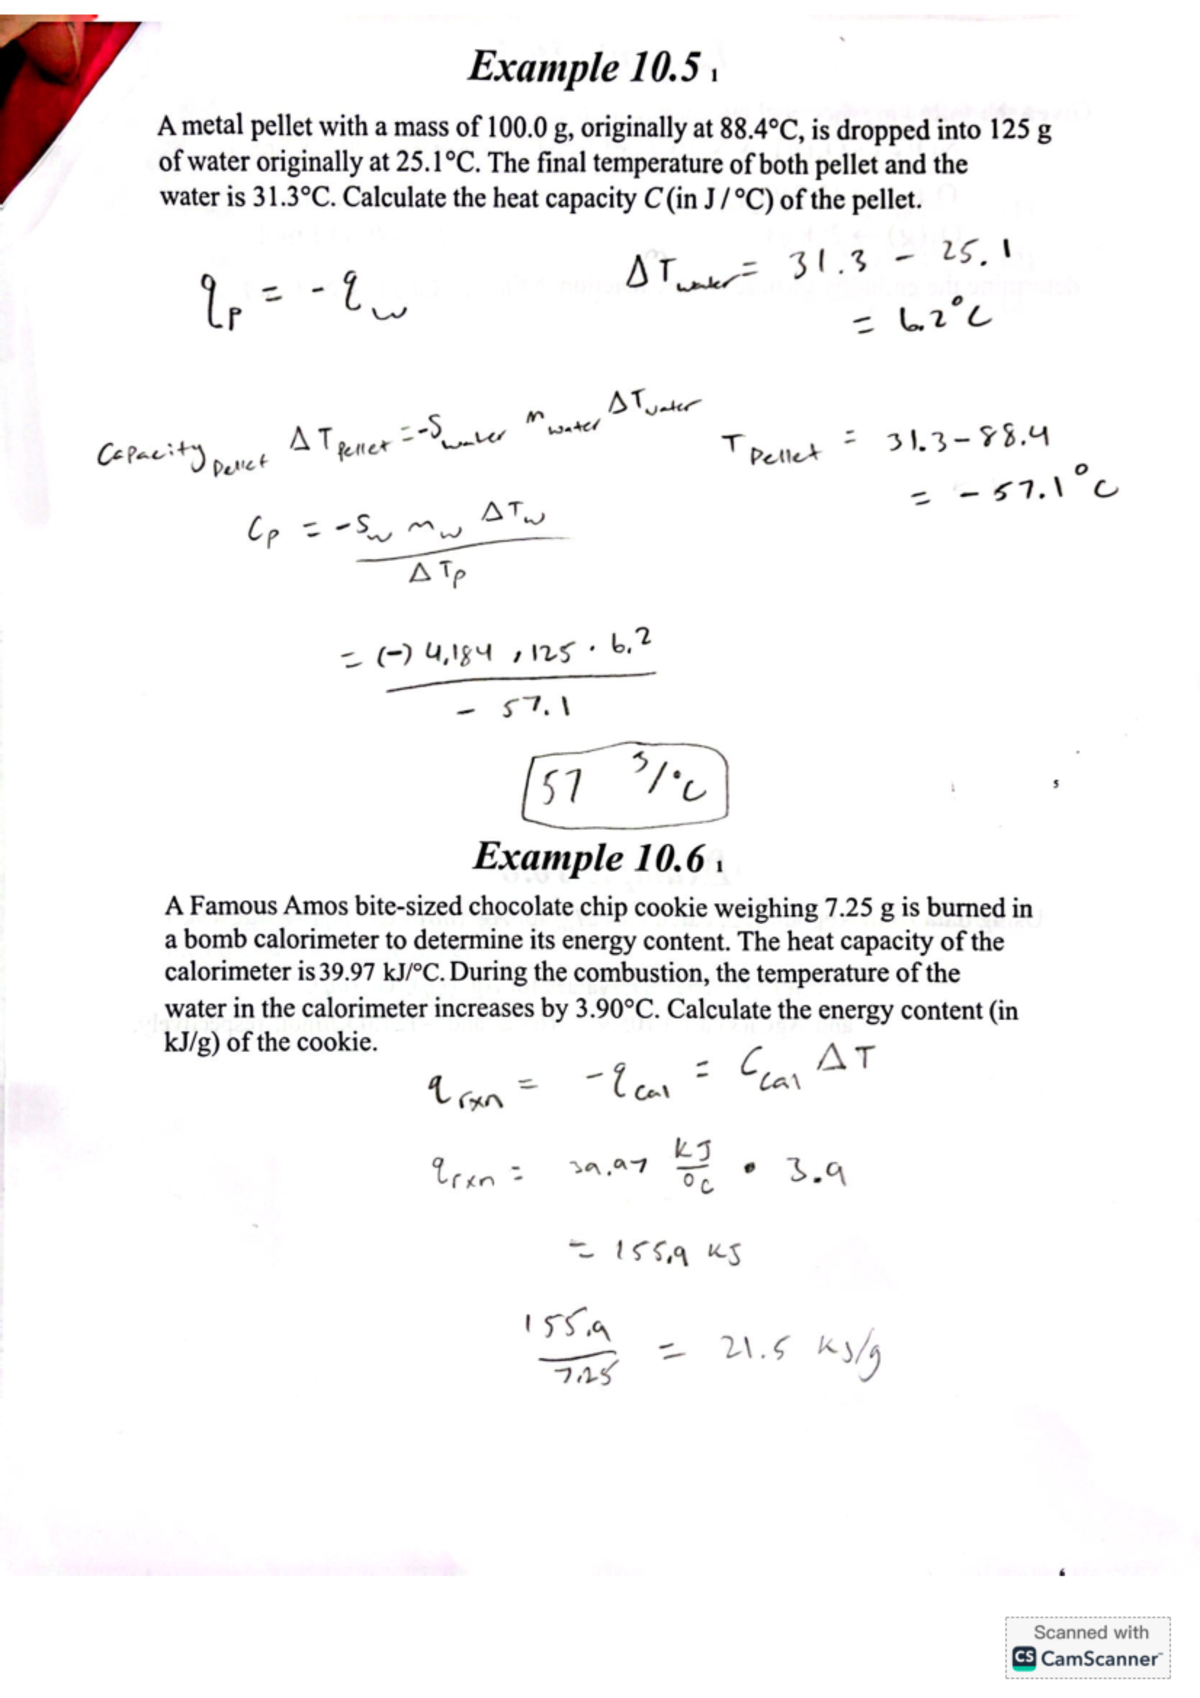 Example 10.5 1
A metal pellet with a mass of 100.0 g, originally at 88.4°C, is dropped into 125 g
of water originally at 25.1°C. The final temperature of both pellet and the
water is 31.3°C. Calculate the heat capacity C (in J / °C) of the pellet.
q_p = - q_w
ΔT_water = 31.3 - 25.1
= 6.2°C
Capacity_pellet ΔT_pellet = -S_water m_water ΔT_water
T_pellet = 31.3-88.4
= -57.1°C
C_p = -S_w m_w ΔT_w
ΔT_p
= (-) 4.184 · 125 · 6.2
- 57.1
57 J/°C
Example 10.6 1
A Famous Amos bite-sized chocolate chip cookie weighing 7.25 g is burned in
a bomb calorimeter to determine its energy content. The heat capacity of the
calorimeter is 39.97 kJ/°C. During the combustion, the temperature of the
water in the calorimeter increases by 3.90°C. Calculate the energy content (in
kJ/g) of the cookie.
q_rxn = -q_cal = C_cal ΔT
q_rxn = 39.97 kJ/°C • 3.9
= 155.9 kJ
155.9
7.25
= 21.5 kJ/g
Scanned with
CS CamScanner